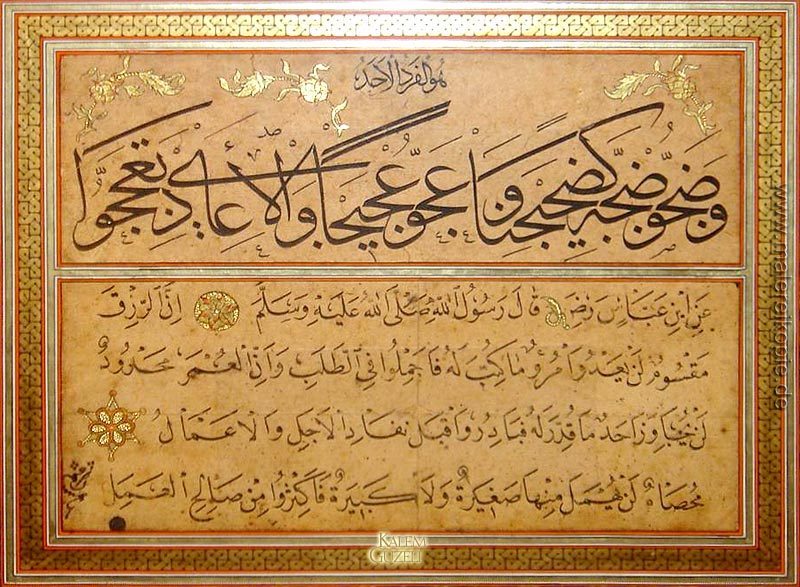 هو الفرد الاحد
وضجو ضجة كضجيجنا وعجو عجيجا والاعادي تعججوا
عن ابن عباس رضي قال رسول الله صلى الله عليه وسلم ان الرزق
مقسوم لن يعدوا مرؤ ما كتب له فاجملوا في الطلب وان العمر محدود
لن يجاوز احد ما قدر له فبادروا قبل نفاد الاجل والاعمال
محصاة لن يهمل منها صغيرة ولا كبيرة فاكثروا من صالح العمل
KALEM
GUZELI
www.malereikopie.de